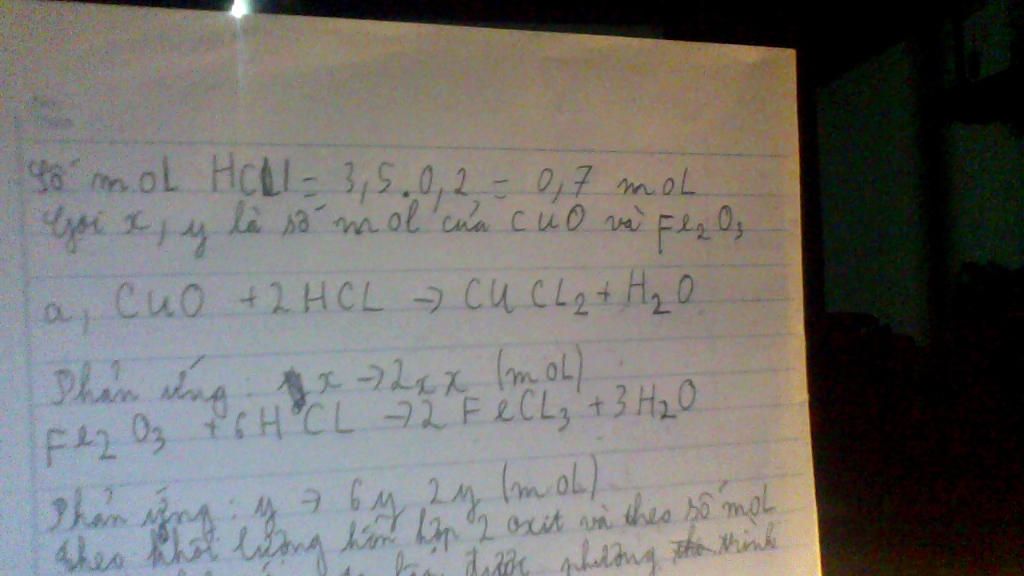 Số mol HCl = 3,5.0,2 = 0,7 mol
Gọi x, y là số mol của CuO và Fe2O3
a, CuO + 2HCL → CuCL2 + H2O
Phản ứng: x → 2x x (mol)
Fe2O3 + 6HCL → 2FeCL3 + 3H2O
Phản ứng: y → 6y 2y (mol)
theo khối lượng hỗn hợp 2 oxit và theo số mol
được phương trình